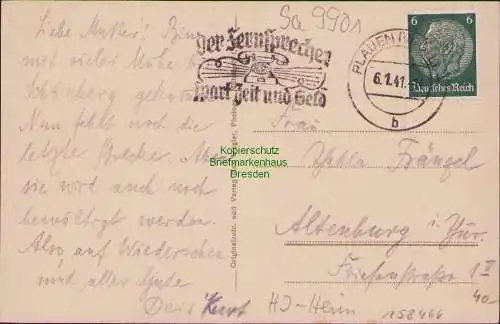 Sa 9901
Liebe Mutter! Bin
mit vieler Mühe bis
Schönberg gekommen.
Nun fehlt noch die
letzte Strecke. Aber
sie wird auch noch
bewältigt werden.
Also, auf Wiedersehen
und alles Gute
Dein Kurt
Der Fernsprecher
spart Zeit und Geld
PLAUEN
6.1.41.
b
6 6
Deutsches Reich
Frau
Fränzel
Altenburg i. Thür.
Friesenstraße 1 II
40.-
HJ-Heim
158466
Kopierschutz
Briefmarkenhaus
Dresden
Originalaufn. und Verlag